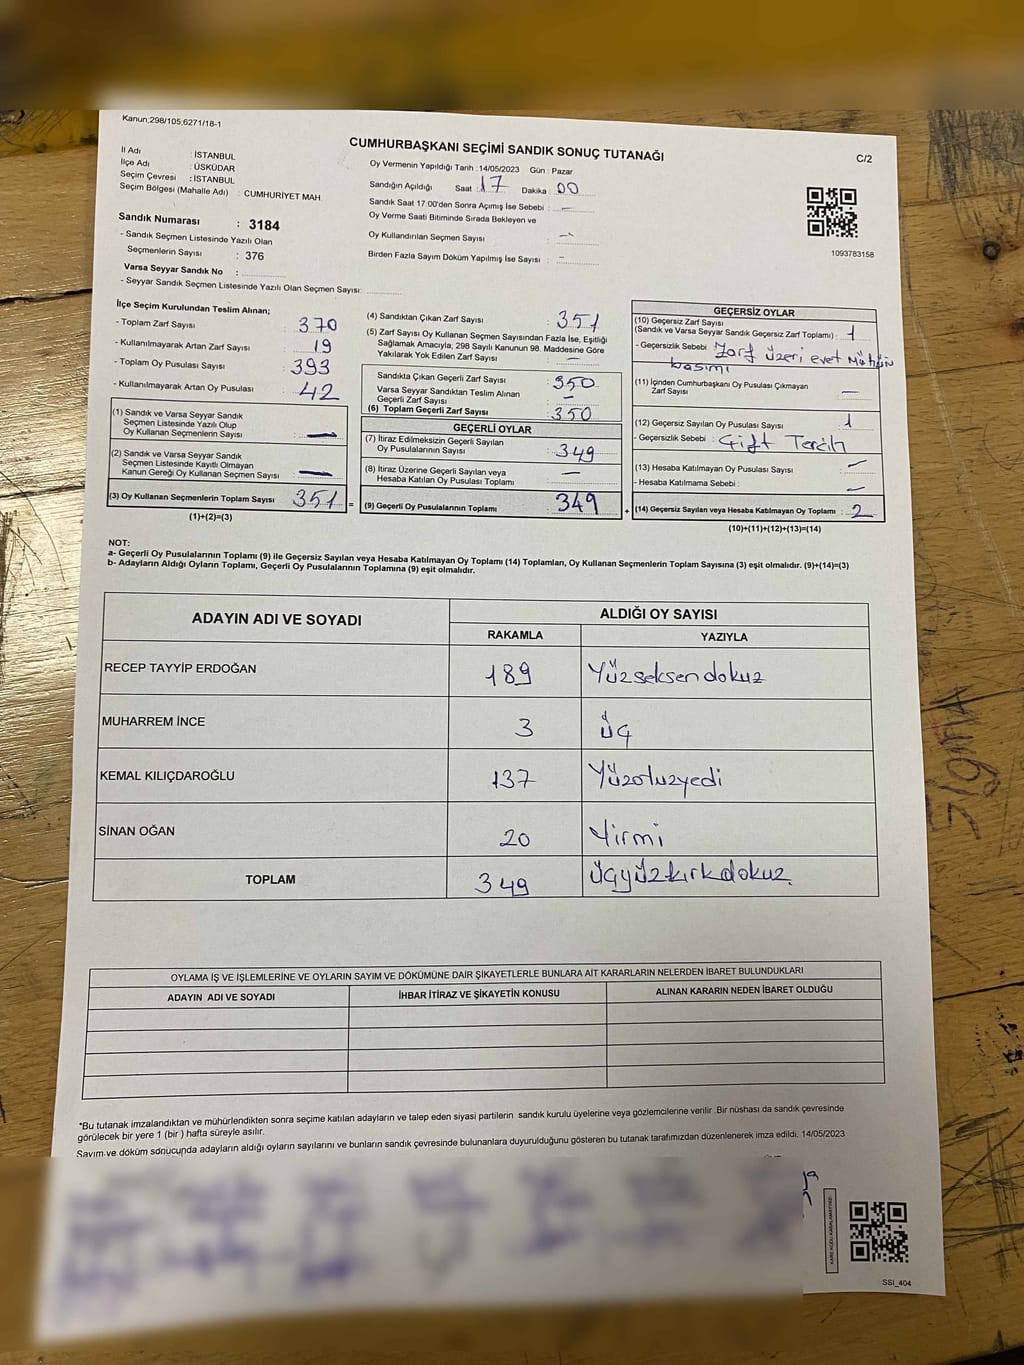 Kanun;298/105,6271/18-1
CUMHURBAŞKANI SEÇİMİ SANDIK SONUÇ TUTANAĞI
C/2
İl Adı : İSTANBUL
İlçe Adı : ÜSKÜDAR
Seçim Çevresi : İSTANBUL
Seçim Bölgesi (Mahalle Adı) : CUMHURİYET MAH
Sandık Numarası : 3184
- Sandık Seçmen Listesinde Yazılı Olan
Seçmenlerin Sayısı : 376
Varsa Seyyar Sandık No :
- Seyyar Sandık Seçmen Listesinde Yazılı Olan Seçmen Sayısı:
Oy Vermenin Yapıldığı Tarih : 14/05/2023 Gün : Pazar
Sandığın Açıldığı Saat : 17 Dakika : 00
Sandık Saat 17:00'den Sonra Açımış İse Sebebi : –
Oy Verme Saati Bitiminde Sırada Bekleyen ve
Oy Kullandırılan Seçmen Sayısı : –
Birden Fazla Sayım Döküm Yapılmış İse Sayısı : –
1093783158
İlçe Seçim Kurulundan Teslim Alınan;
- Toplam Zarf Sayısı : 370
- Kullanılmayarak Artan Zarf Sayısı : 19
- Toplam Oy Pusulası Sayısı : 393
- Kullanılmayarak Artan Oy Pusulası : 42
(1) Sandık ve Varsa Seyyar Sandık
Seçmen Listesinde Yazılı Olup
Oy Kullanan Seçmenlerin Sayısı : —
(2) Sandık ve Varsa Seyyar Sandık
Seçmen Listesinde Kayıtlı Olmayan
Kanun Gereği Oy Kullanan Seçmen Sayısı : —
(3) Oy Kullanan Seçmenlerin Toplam Sayısı : 351 =
(1)+(2)=(3)
(4) Sandıktan Çıkan Zarf Sayısı : 351
(5) Zarf Sayısı Oy Kullanan Seçmen Sayısından Fazla İse, Eşitliği
Sağlamak Amacıyla, 298 Sayılı Kanunun 98. Maddesine Göre
Yakılarak Yok Edilen Zarf Sayısı : –
Sandıkta Çıkan Geçerli Zarf Sayısı : 350
Varsa Seyyar Sandıktan Teslim Alınan
Geçerli Zarf Sayısı : –
(6) Toplam Geçerli Zarf Sayısı : 350
GEÇERLİ OYLAR
(7) İtiraz Edilmeksizin Geçerli Sayılan
Oy Pusulalarının Sayısı : 349
(8) İtiraz Üzerine Geçerli Sayılan veya
Hesaba Katılan Oy Pusulası Toplamı : –
(9) Geçerli Oy Pusulalarının Toplamı : 349 +
GEÇERSİZ OYLAR
(10) Geçersiz Zarf Sayısı
(Sandık ve Varsa Seyyar Sandık Geçersiz Zarf Toplamı) : 1
- Geçersizlik Sebebi : Zarf üzeri evet Mührün
basımı
(11) İçinden Cumhurbaşkanı Oy Pusulası Çıkmayan
Zarf Sayısı : –
(12) Geçersiz Sayılan Oy Pusulası Sayısı : 1
- Geçersizlik Sebebi : Çift Tercih
(13) Hesaba Katılmayan Oy Pusulası Sayısı : –
- Hesaba Katılmama Sebebi : –
(14) Geçersiz Sayılan veya Hesaba Katılmayan Oy Toplamı : 2
(10)+(11)+(12)+(13)=(14)
NOT:
a- Geçerli Oy Pusulalarının Toplamı (9) ile Geçersiz Sayılan veya Hesaba Katılmayan Oy Toplamı (14) Toplamları, Oy Kullanan Seçmenlerin Toplam Sayısına (3) eşit olmalıdır. (9)+(14)=(3)
b- Adayların Aldığı Oyların Toplamı, Geçerli Oy Pusulalarının Toplamına (9) eşit olmalıdır.
ADAYIN ADI VE SOYADI
ALDIĞI OY SAYISI
RAKAMLA YAZIYLA
RECEP TAYYİP ERDOĞAN 189 Yüzseksendokuz
MUHARREM İNCE 3 üç
KEMAL KILIÇDAROĞLU 137 Yüzotuzyedi
SİNAN OĞAN 20 Yirmi
TOPLAM 349 üçyüzkırkdokuz
OYLAMA İŞ VE İŞLEMLERİNE VE OYLARIN SAYIM VE DÖKÜMÜNE DAİR ŞİKAYETLERLE BUNLARA AİT KARARLARIN NELERDEN İBARET BULUNDUKLARI
ADAYIN ADI VE SOYADI İHBAR İTİRAZ VE ŞİKAYETİN KONUSU ALINAN KARARIN NEDEN İBARET OLDUĞU
*Bu tutanak imzalandıktan ve mühürlendikten sonra seçime katılan adayların ve talep eden siyasi partilerin sandık kurulu üyelerine veya gözlemcilerine verilir .Bir nüshası da sandık çevresinde
görülecek bir yere 1 (bir ) hafta süreyle asılır.
Sayım ve döküm sonucunda adayların aldığı oyların sayılarını ve bunların sandık çevresinde bulunanlara duyurulduğunu gösteren bu tutanak tarafımızdan düzenlenerek imza edildi. 14/05/2023
SSI_404